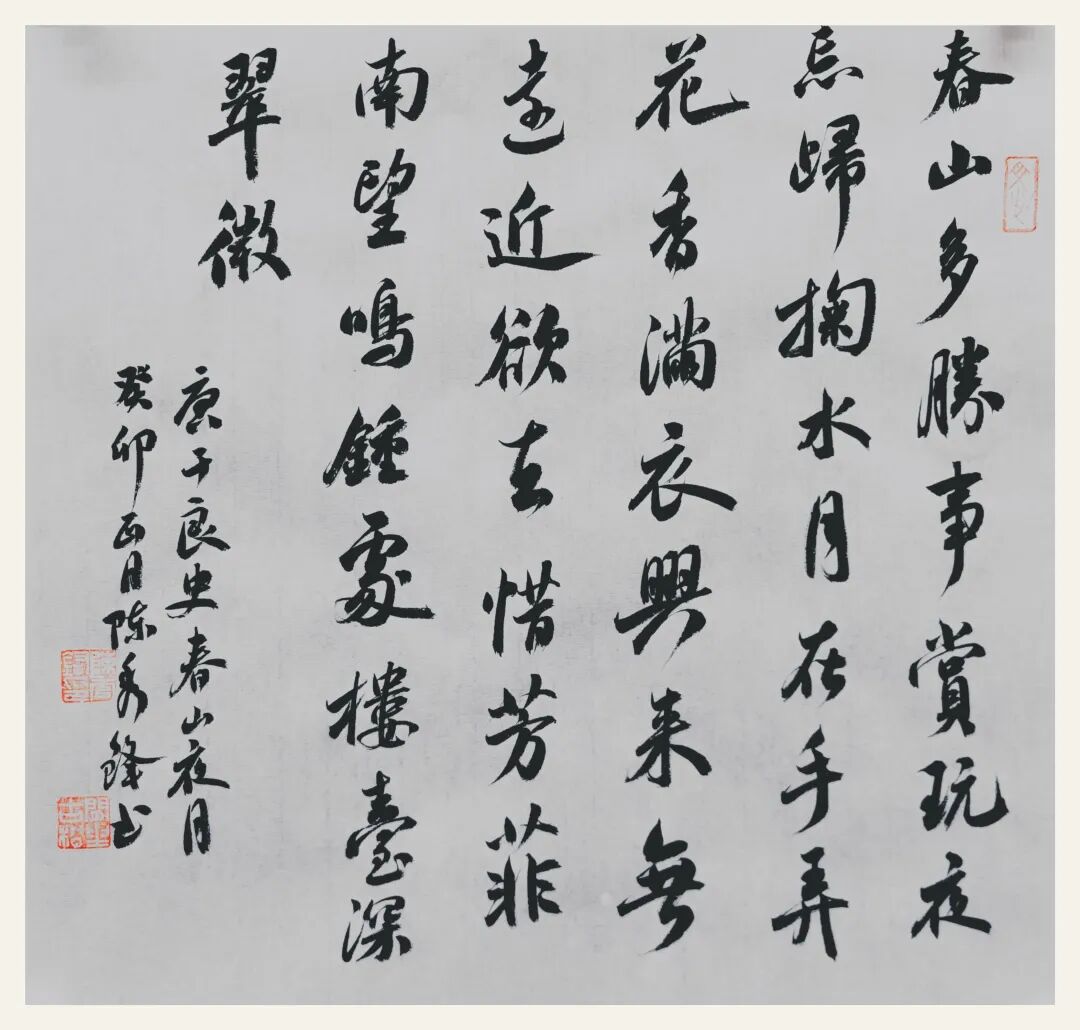 春山多勝事賞玩夜
忘歸掬水月在手弄
花香滿衣興来無
遠近欲去惜芳菲
南望鳴鍾處樓臺深
翠微
唐于良史春山夜月
癸卯正月陈秀鋒书